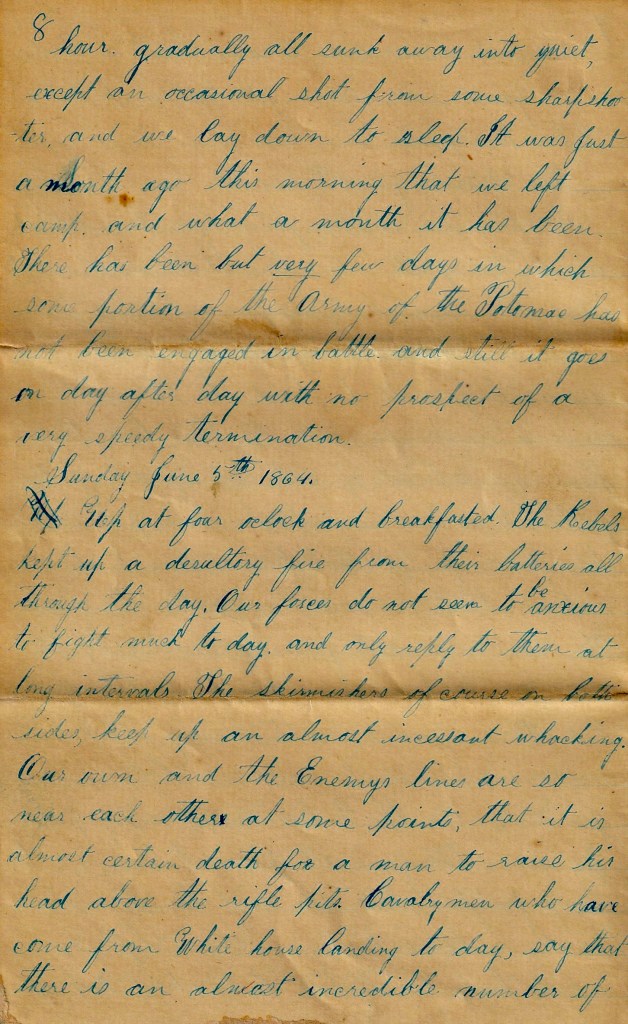 8
hour. gradually all sunk away into quiet,
except an occasional shot from some sharpshoo
-ter, and we lay down to sleep. It was just
a month ago this morning that we left
camp. and what a month it has been.
There has been but very few days in which
some portion of the Army of the Potomac has
not been engaged in battle. and still it goes
on day after day with no prospect of a
very speedy termination.
Sunday June 5th 1864.
Up at four oclock and breakfasted. The Rebels
kept up a desultory fire from their batteries all
through the day. Our forces do not seem to be anxious
to fight much to day. and only reply to them at
long intervals. The skirmishers of course on both
sides, keep up an almost incessant whacking.
Our own and the Enemys lines are so
near each other at some points, that it is
almost certain death for a man to raise his
head above the rifle pits. Cavalrymen who have
come from White house landing to day, say that
there is an almost incredible number of